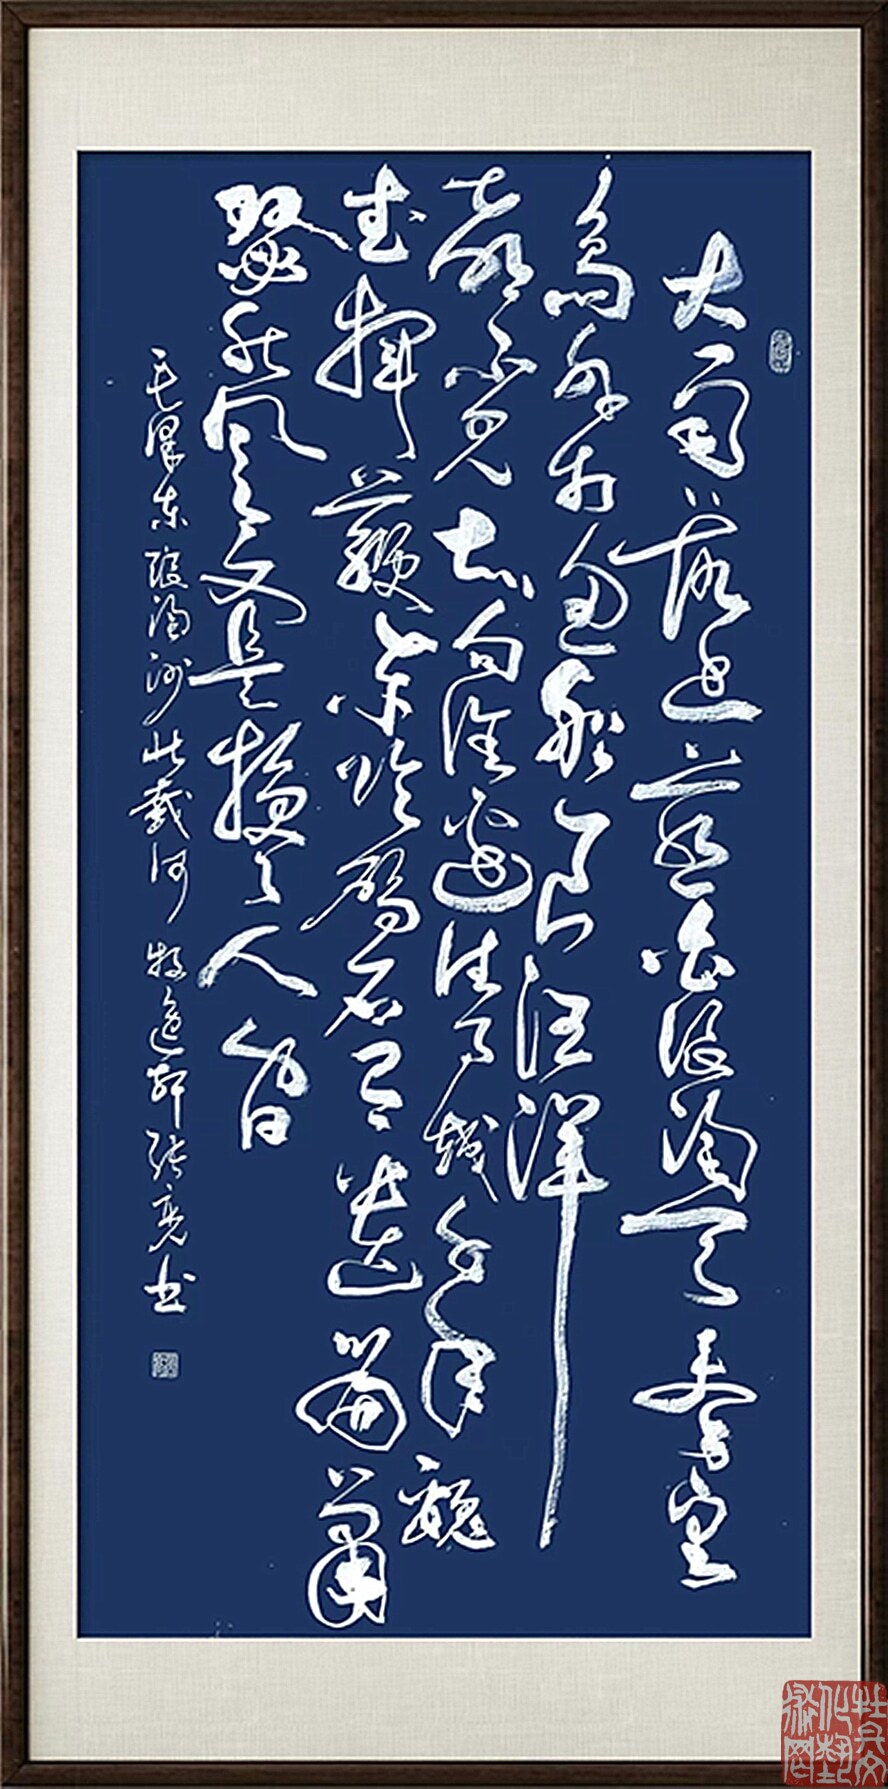 大雨落幽燕白浪滔天秦皇
岛外打鱼船一片汪洋
都不见知向谁边往事越千年魏
武挥鞭东临碣石有遗篇萧
瑟秋风今又是换了人间
毛泽东浪淘沙北戴河 牧逸轩张亮书